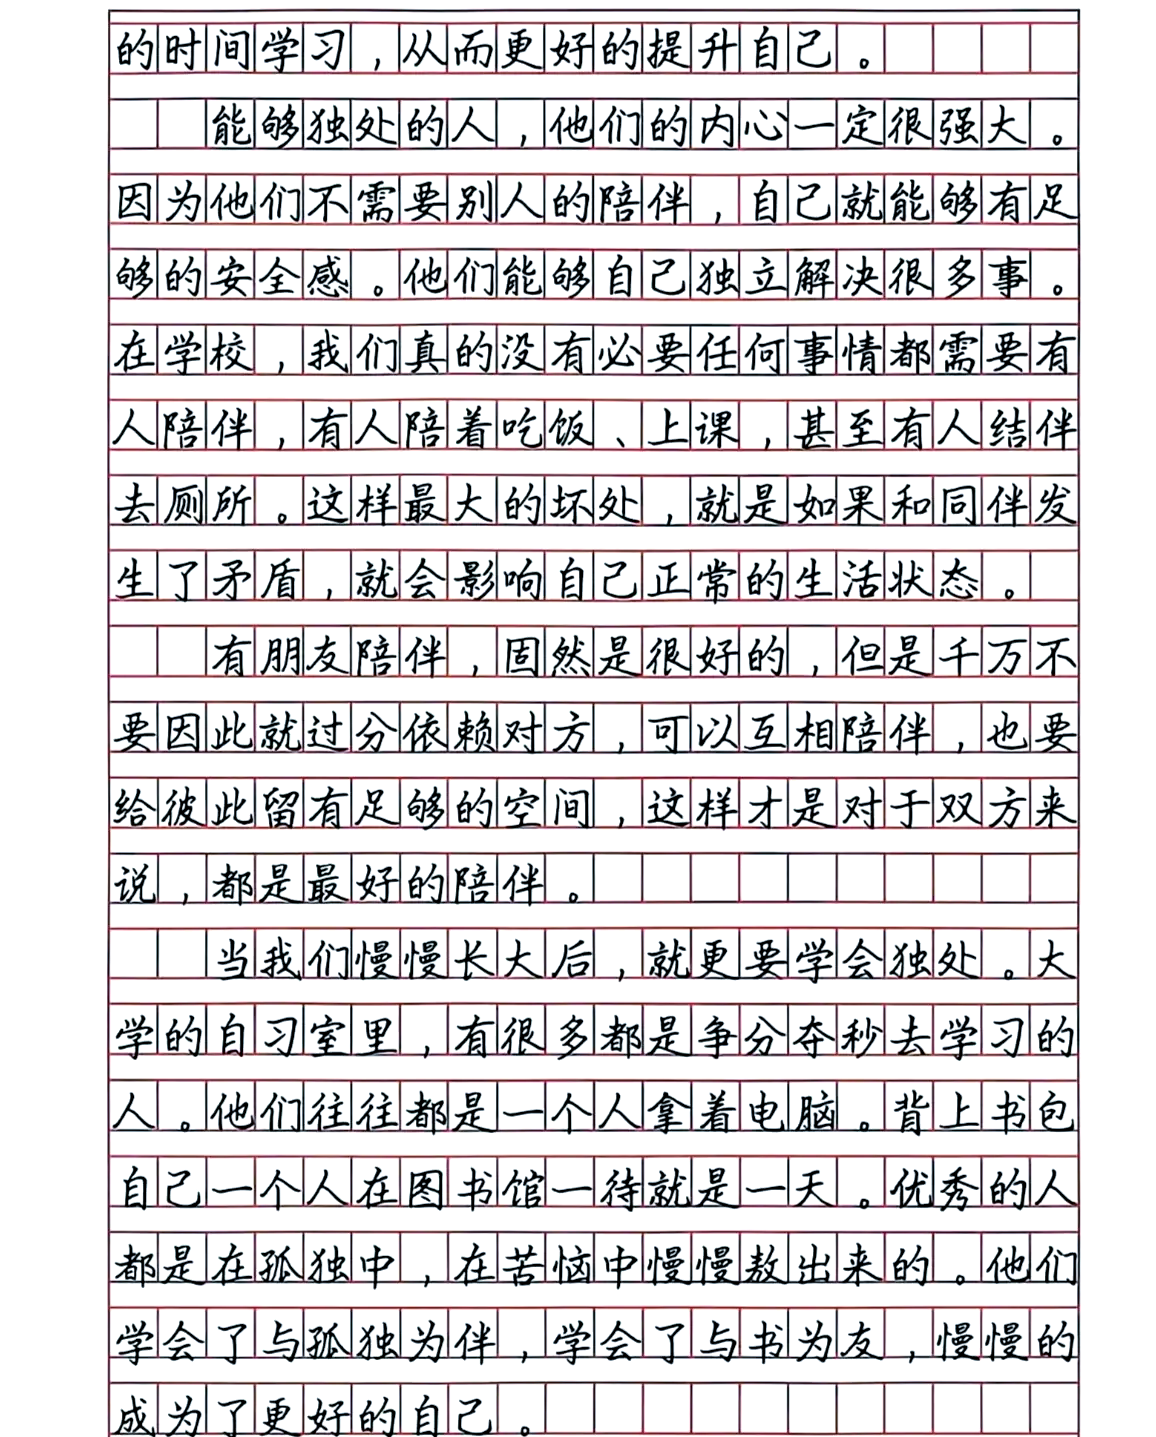 的时间学习,从而更好的提升自己。
能够独处的人,他们的内心一定很强大。
因为他们不需要别人的陪伴,自己就能够有足
够的安全感。他们能够自己独立解决很多事。
在学校,我们真的没有必要任何事情都需要有
人陪伴,有人陪着吃饭、上课,甚至有人结伴
去厕所。这样最大的坏处,就是如果和同伴发
生了矛盾,就会影响自己正常的生活状态。
有朋友陪伴,固然是很好的,但是千万不
要因此就过分依赖对方,可以互相陪伴,也要
给彼此留有足够的空间,这样才是对于双方来
说,都是最好的陪伴。
当我们慢慢长大后,就更要学会独处。大
学的自习室里,有很多都是争分夺秒去学习的
人。他们往往都是一个人拿着电脑。背上书包
自己一个人在图书馆一待就是一天。优秀的人
都是在孤独中,在苦恼中慢慢敖出来的。他们
学会了与孤独为伴,学会了与书为友,慢慢的
成为了更好的自己。